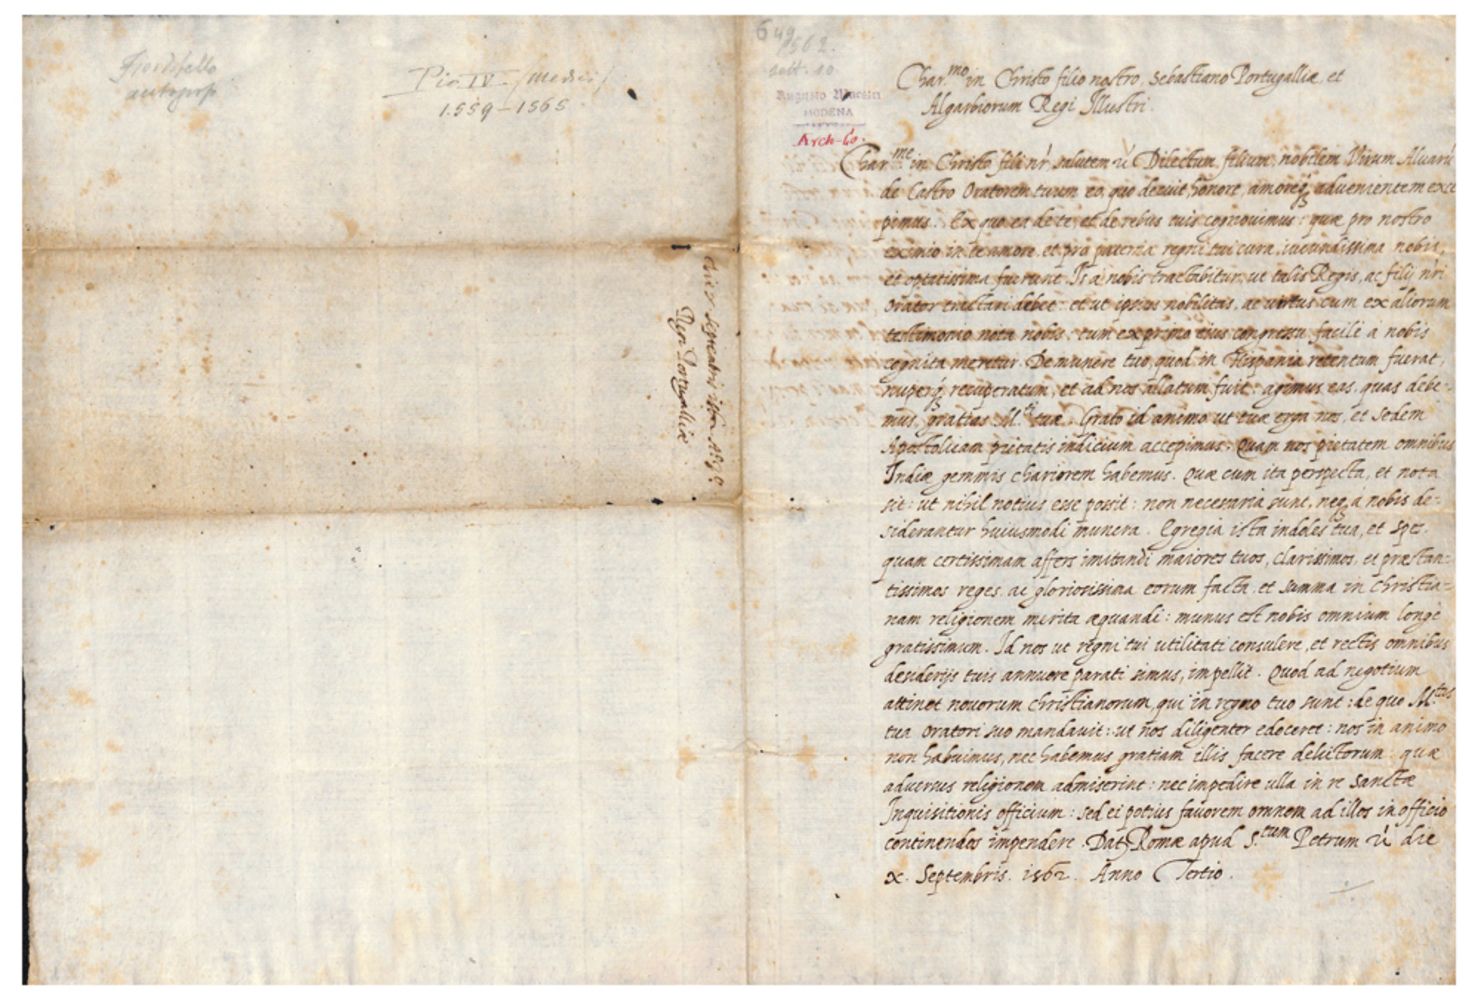 Fiordibello
autograf
Pio IV - (Medici)
1559-1565
649
1562.
sett. 10
Augusto
MODENA
Arch-Co.
die x septembris 1562 A.º 3.º
Regi Portugalliæ
Char.mo in Christo filio nostro Sebastiano Portugalliæ, et
Algarbiorum Regi Illustri.
Char.me in Christo fili nr̃ salutem &c̃ Dilectum filium, nobilem Virum Aluarũ
de Castro Oratorem tuum eo, quo decuit, honore, amoreq; aduenientem exce
pimus. Ex quo ea de te, et de rebus tuis cognouimus: quæ pro nostro
eximio in te amore, et pro paterna regni tui cura, iucundissima nobis,
et optatissima fuerunt. Is a nobis tractabitur, ut talis Regis, ac filij nr̃i
Orator tractari debet: et ut ipsius nobilitas, ac uirtus cum ex aliorum
testimonio nota nobis: tum ex primo eius congressu facile a nobis
cognita meretur. De munere tuo, quod in Hispania retentum fuerat,
nuperq; recuperatum, et ad nos allatum fuit: agimus eas, quas debe-
mus, gratias M.ti tuæ. Grato id animo ut tuæ erga nos, et Sedem
Apostolicam pietatis indicium accepimus: Quam nos pietatem omnibus
Indiæ gemmis chariorem habemus. Quæ cum ita perspecta, et nota
sit: ut nihil notius esse possit: non necessaria sunt, neq; a nobis de-
siderantur huiusmodi munera. Egregia ista indoles tua, et spes
quam certissimam affers imitandi maiores tuos, clarissimos, et præstan-
tissimos reges, ac gloriosissima eorum facta, et summa in Christia-
nam religionem merita æquandi: munus est nobis omnium longè
gratissimum. Id nos ut regni tui utilitati consulere, et rectis omnibus
desiderijs tuis annuere parati simus, impellit. Quod ad negotium
attinet nouorum christianorum, qui in regno tuo sunt: de quo M.tas
tua Oratori suo mandauit: ut nos diligenter edoceret: nos in animo
non habuimus, nec habemus gratiam illis facere delictorum: quæ
aduersus religionem admiserint: nec impedire ulla in re Sanctæ
Inquisitionis officium: sed ei potius fauorem omnem ad illos in officio
continendos impendere. Dat. Romæ apud S.tum Petrum &c̃ die
x. Septembris. 1562. Anno Tertio.